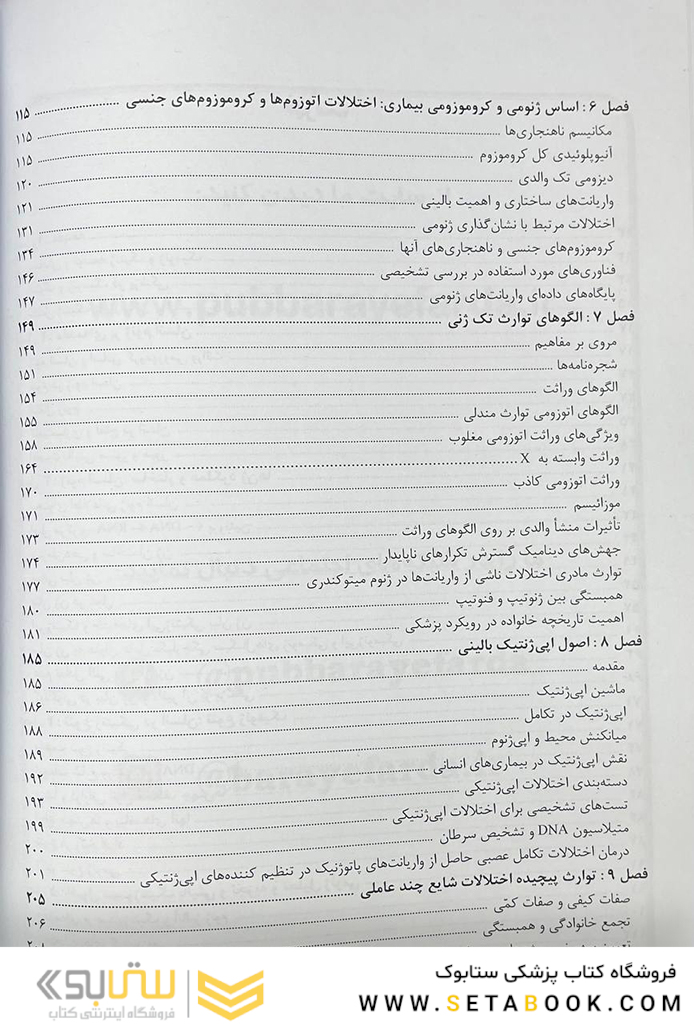 فصل ۶ : اساس ژنومی و کروموزومی بیماری: اختلالات اتوزوم‌ها و کروموزوم‌های جنسی ........ ۱۱۵
مکانیسم ناهنجاری‌ها ........ ۱۱۵
آنیوپلوئیدی کل کروموزوم ........ ۱۱۵
دیزومی تک والدی ........ ۱۲۰
واریانت‌های ساختاری و اهمیت بالینی ........ ۱۲۱
اختلالات مرتبط با نشان‌گذاری ژنومی ........ ۱۳۱
کروموزوم‌های جنسی و ناهنجاری‌های آنها ........ ۱۳۴
فناوری‌های مورد استفاده در بررسی تشخیصی ........ ۱۴۶
پایگاه‌های داده‌ای واریانت‌های ژنومی ........ ۱۴۷
فصل ۷ : الگوهای توارث تک ژنی ........ ۱۴۹
مروی بر مفاهیم ........ ۱۴۹
شجره‌نامه‌ها ........ ۱۵۱
الگوهای وراثت ........ ۱۵۴
الگوهای اتوزومی توارث مندلی ........ ۱۵۵
ویژگی‌های وراثت اتوزومی مغلوب ........ ۱۵۸
وراثت وابسته به X ........ ۱۶۴
وراثت اتوزومی کاذب ........ ۱۷۰
موزائیسم ........ ۱۷۱
تأثیرات منشأ والدی بر روی الگوهای وراثت ........ ۱۷۳
جهش‌های دینامیک گسترش تکرارهای ناپایدار ........ ۱۷۴
توارث مادری اختلالات ناشی از واریانت‌ها در ژنوم میتوکندری ........ ۱۷۷
همبستگی بین ژنوتیپ و فنوتیپ ........ ۱۸۰
اهمیت تاریخچه خانواده در رویکرد پزشکی ........ ۱۸۱
فصل ۸ : اصول اپی‌ژنتیک بالینی ........ ۱۸۵
مقدمه ........ ۱۸۵
ماشین اپی‌ژنتیک ........ ۱۸۶
اپی‌ژنتیک در تکامل ........ ۱۸۸
میانکنش محیط و اپی‌ژنوم ........ ۱۸۹
نقش اپی‌ژنتیک در بیماری‌های انسانی ........ ۱۹۲
دسته‌بندی اختلالات اپی‌ژنتیکی ........ ۱۹۳
تست‌های تشخیصی برای اختلالات اپی‌ژنتیکی ........ ۱۹۹
متیلاسیون DNA و تشخیص سرطان ........ ۲۰۰
درمان اختلالات تکامل عصبی حاصل از واریانت‌های پاتوژنیک در تنظیم کننده‌های اپی‌ژنتیکی ........ ۲۰۱
فصل ۹ : توارث پیچیده اختلالات شایع چند عاملی ........ ۲۰۵
صفات کیفی و صفات کمّی ........ ۲۰۵
تجمع خانوادگی و همبستگی ........ ۲۰۶
فروشگاه کتاب پزشکی ستابوک
WWW.SETABOOK.COM
ستابوک
فروشگاه اینترنتی کتاب